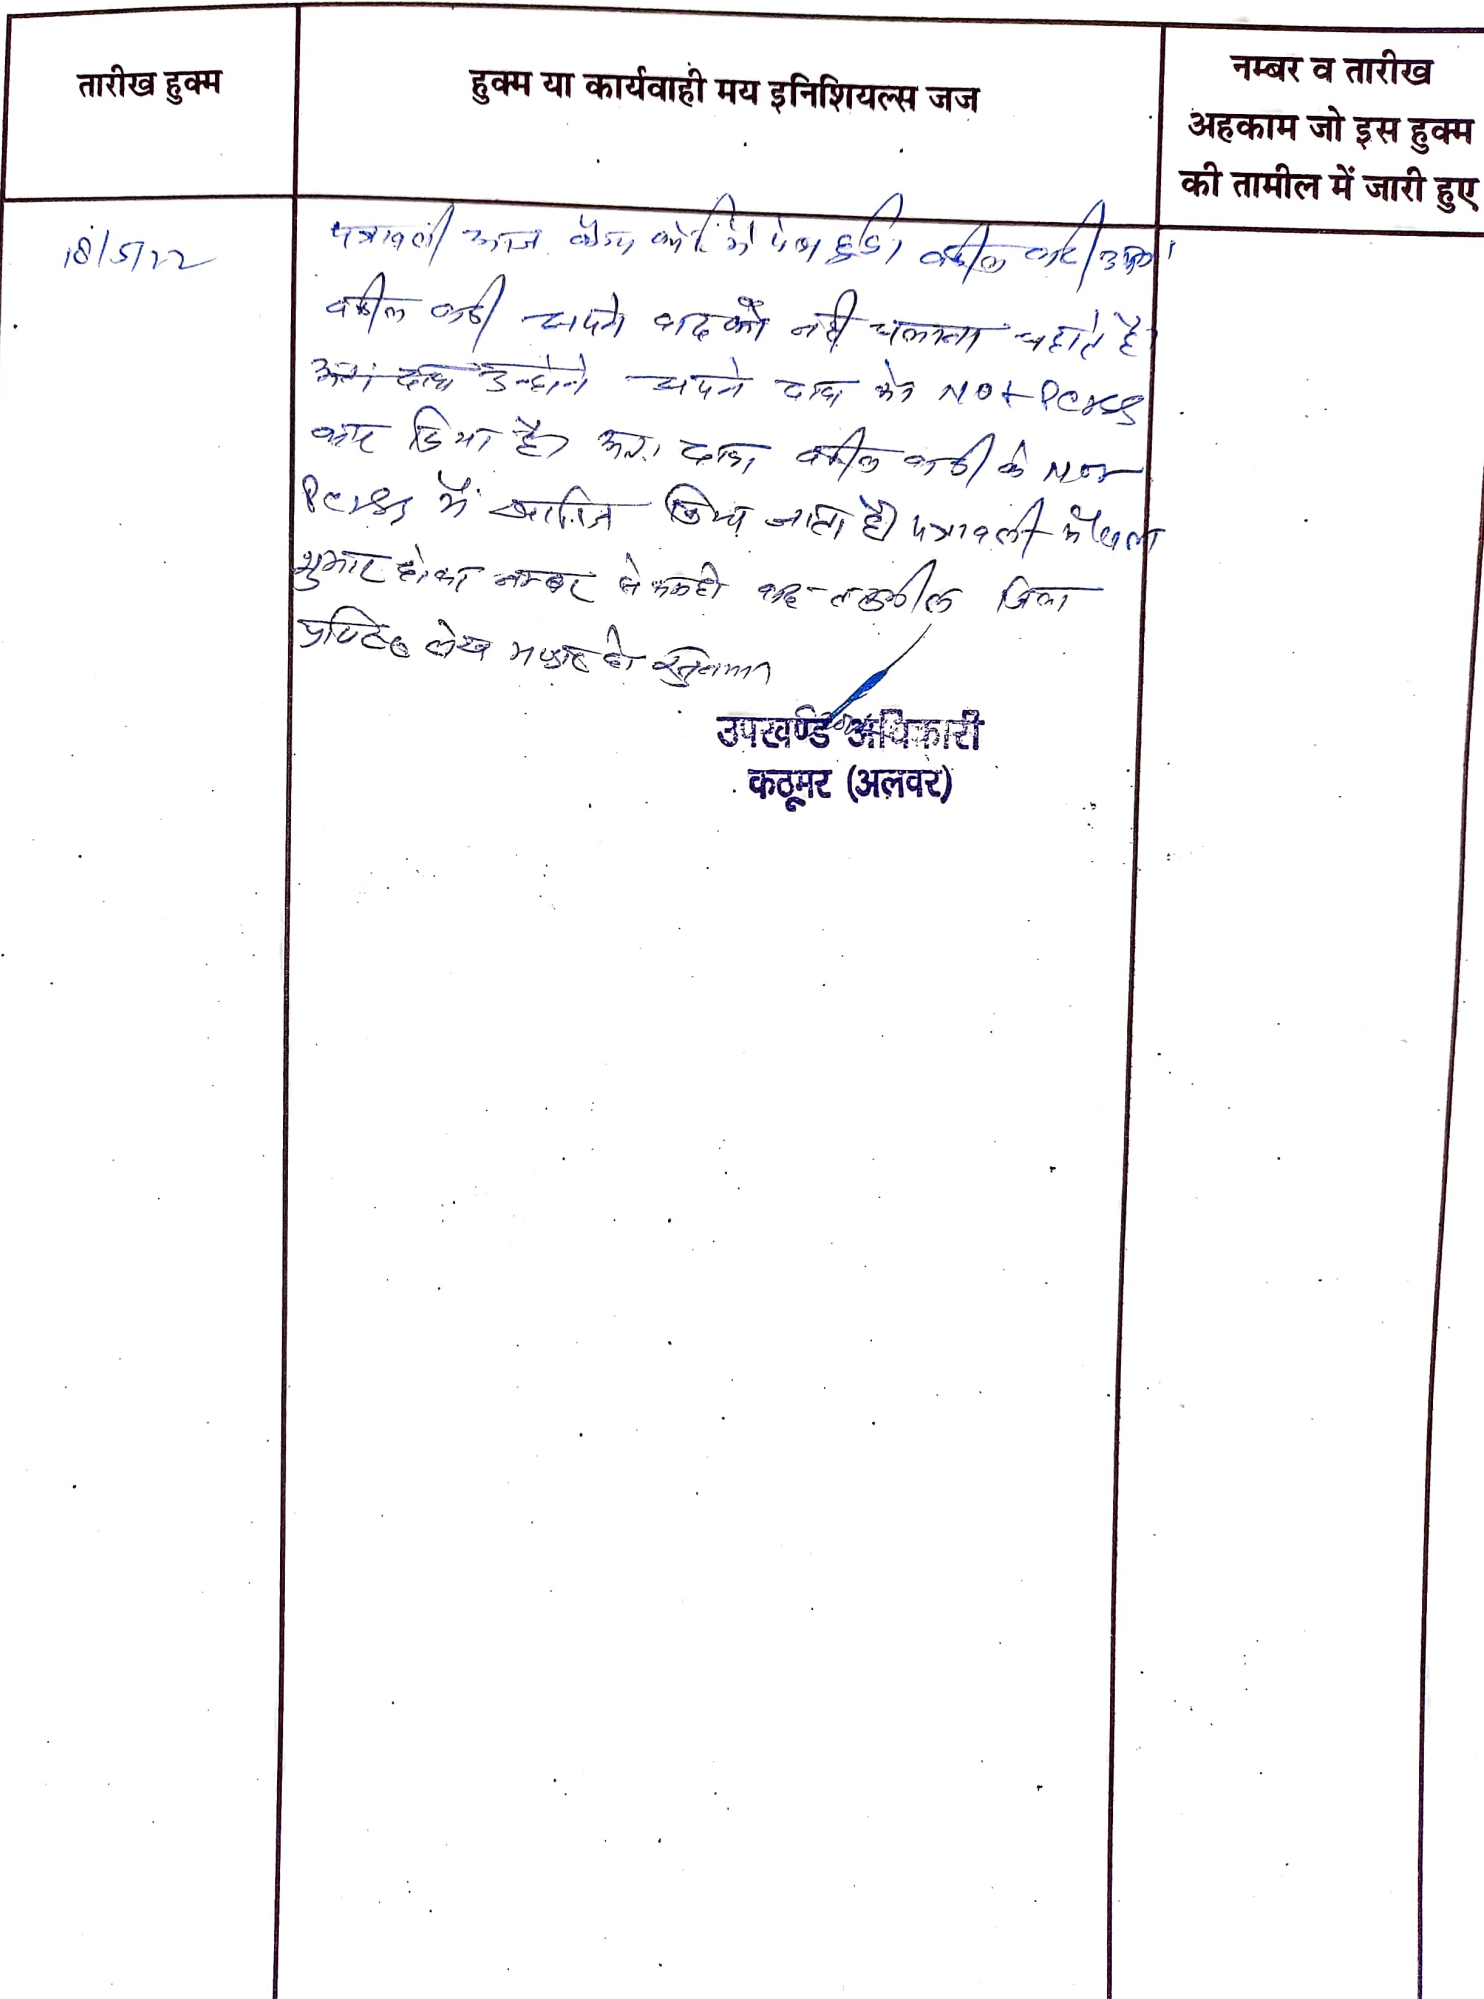 तारीख हुक्म
हुक्म या कार्यवाही मय इनिशियल्स जज
नम्बर व तारीख
अहकाम जो इस हुक्म
की तामील में जारी हुए
18/5/22
पत्रावली आज कैम्प कोर्ट में पेश हुई। वकील वादी उप०।
वकील वादी अपने वाद को नही चलाना चहाते है।
उन्होने अपने दावा को Not Perss
कर दिया है। अतः दावा वकील वादी के Not
Perss में खारिज किया जाता है। पत्रावली फैसला
शुमार होकर नम्बर से कम हो बाद तकमील जिला
लेख भण्डार हो
उपखण्ड अधिकारी
कठूमर (अलवर)